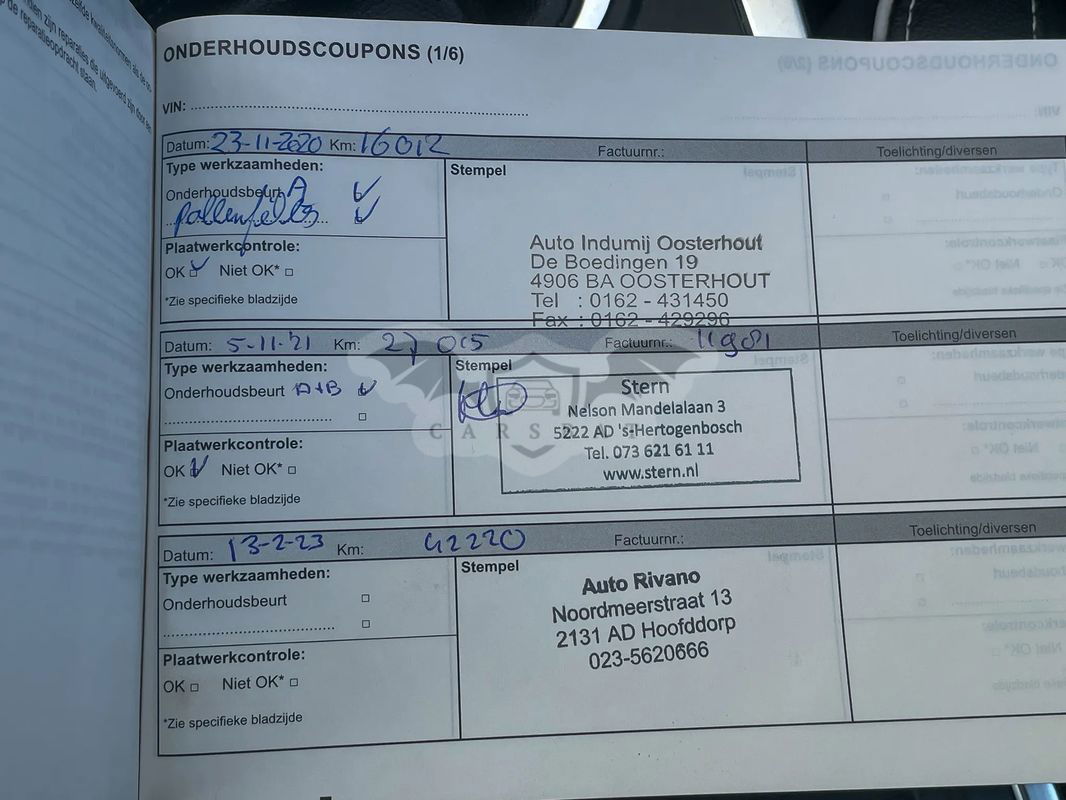 ONDERHOUDSCOUPONS (1/6)
VIN:
Datum: 23-11-2020 Km: 16012 Factuurnr.: Toelichting/diversen
Type werkzaamheden:
Stempel
Onderhoudsbeurt A
pollenfilter
Plaatwerkcontrole:
OK Niet OK*
*Zie specifieke bladzijde
Auto Indumij Oosterhout
De Boedingen 19
4906 BA OOSTERHOUT
Tel : 0162 - 431450
Fax : 0162 - 429296
Datum: 5-11-'21 Km: 27005 Factuurnr.: Toelichting/diversen
Type werkzaamheden:
Stempel
Onderhoudsbeurt A+B
Plaatwerkcontrole:
OK Niet OK*
*Zie specifieke bladzijde
Stern
Nelson Mandelalaan 3
5222 AD 's-Hertogenbosch
Tel. 073 621 61 11
www.stern.nl
Datum: 13-2-23 Km: 42220 Factuurnr.: Toelichting/diversen
Type werkzaamheden:
Stempel
Onderhoudsbeurt
Plaatwerkcontrole:
OK Niet OK*
*Zie specifieke bladzijde
Auto Rivano
Noordmeerstraat 13
2131 AD Hoofddorp
023-5620666